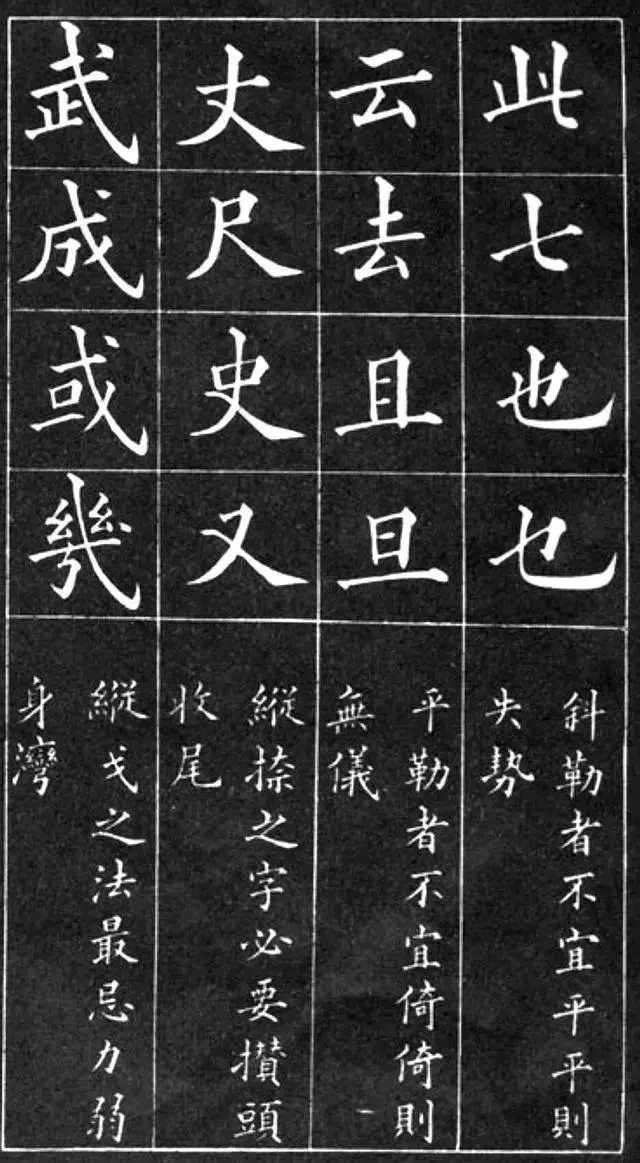 此七也乜
斜勒者不宜平平則
失勢
云去且旦
平勒者不宜倚倚則
無儀
丈尺史又
縱捺之字必要攢頭
收尾
武成或幾
縱戈之法最忌力弱
身灣